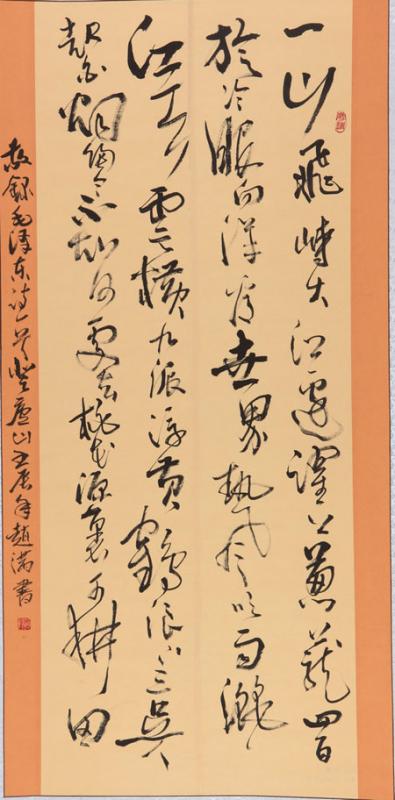 一山飛峙大江邊躍上蔥蘢四百
旋冷眼向洋看世界熱風吹雨灑
江天雲橫九派浮黃鶴浪下三吳
起白烟陶令不知何處去桃花源裏可耕田
敬錄毛澤東詩一首登廬山壬辰年趙滿書